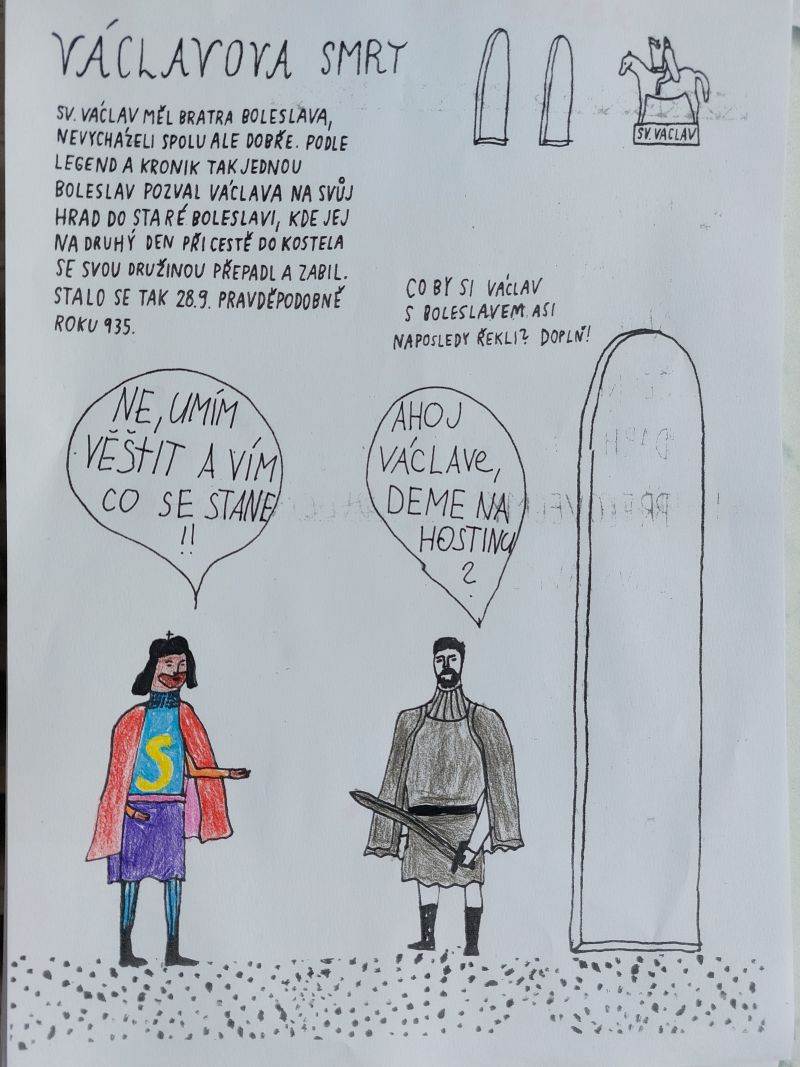 VÁCLAVOVA SMRT
SV. VÁCLAV MĚL BRATRA BOLESLAVA,
NEVYCHÁZELI SPOLU ALE DOBŘE. PODLE
LEGEND A KRONIK TAK JEDNOU
BOLESLAV POZVAL VÁCLAVA NA SVŮJ
HRAD DO STARÉ BOLESLAVI, KDE JEJ
NA DRUHÝ DEN PŘI CESTĚ DO KOSTELA
SE SVOU DRUŽINOU PŘEPADL A ZABIL.
STALO SE TAK 28.9. PRAVDĚPODOBNĚ
ROKU 935.
SV. VÁCLAV
CO BY SI VÁCLAV
S BOLESLAVEM ASI
NAPOSLEDY ŘEKLI? DOPLŇ!
NE, UMÍM
VĚŠTIT A VÍM
CO SE STANE
!!
AHOJ
VÁCLAVe,
DEME NA
HOSTINU
?
S